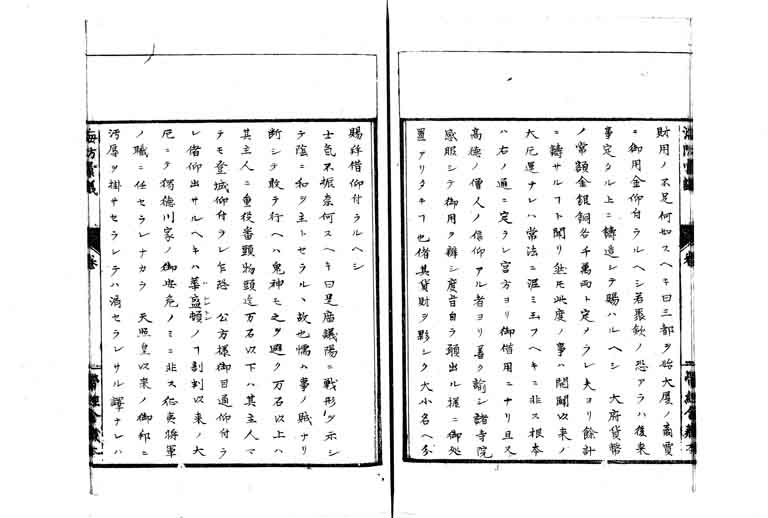 財用ノ不足何如スヘキ曰三都ヲ始大厦ノ商賈
ニ御用金仰付ラルヘシ若聚斂ノ恐アラハ後来
事定タル上ニ鋳造シテ賜ハルヘシ大府貨幣
ノ常額金銀銅各千萬両ト定メラレ夫ヨリ餘計
ニ鋳サルヿト聞リ然モ此度ノ事ハ開闢以来ノ
大厄運ナレハ常法ニ泥ミ玉フヘキニ非ス根本
ハ右ノ通ニ定ラレ宮方ヨリ御借用ニナリ且又
高徳ノ僧人ノ信仰アル者ヨリ善ク諭シ諸寺院
感服シテ御用ヲ辨シ度旨自ラ願出ル様ニ御処
置アリタキヿ也偖其貨財ヲ夥シク大小名ヘ分
賜并借仰付ラルヘシ
士気不振奈何スヘキ曰是廟議陽ニ戦形ヲ示シ
テ陰ニ和ヲ主トセラルヽ故也懦ハ事ノ賊ナリ
断シテ敢テ行ヘハ鬼神モ之ヲ避ク万石以上ハ
其主人ニ重役番頭物頭迄万石以下ハ其主人マ
テモ登城仰付ラレ乍恐 公方様御目通仰付ラ
レ偖仰出サルヘキハ華盛頓ノヿ割剖以来ノ大
厄ニテ獨徳川家ノ御安危ノミニ非ス征夷将軍
ノ職ニ任セラレナカラ 天照皇以来ノ御邦ニ
汚辱ヲ掛サセラレテハ済セラレサル譯ナレハ
海防彙議
巻